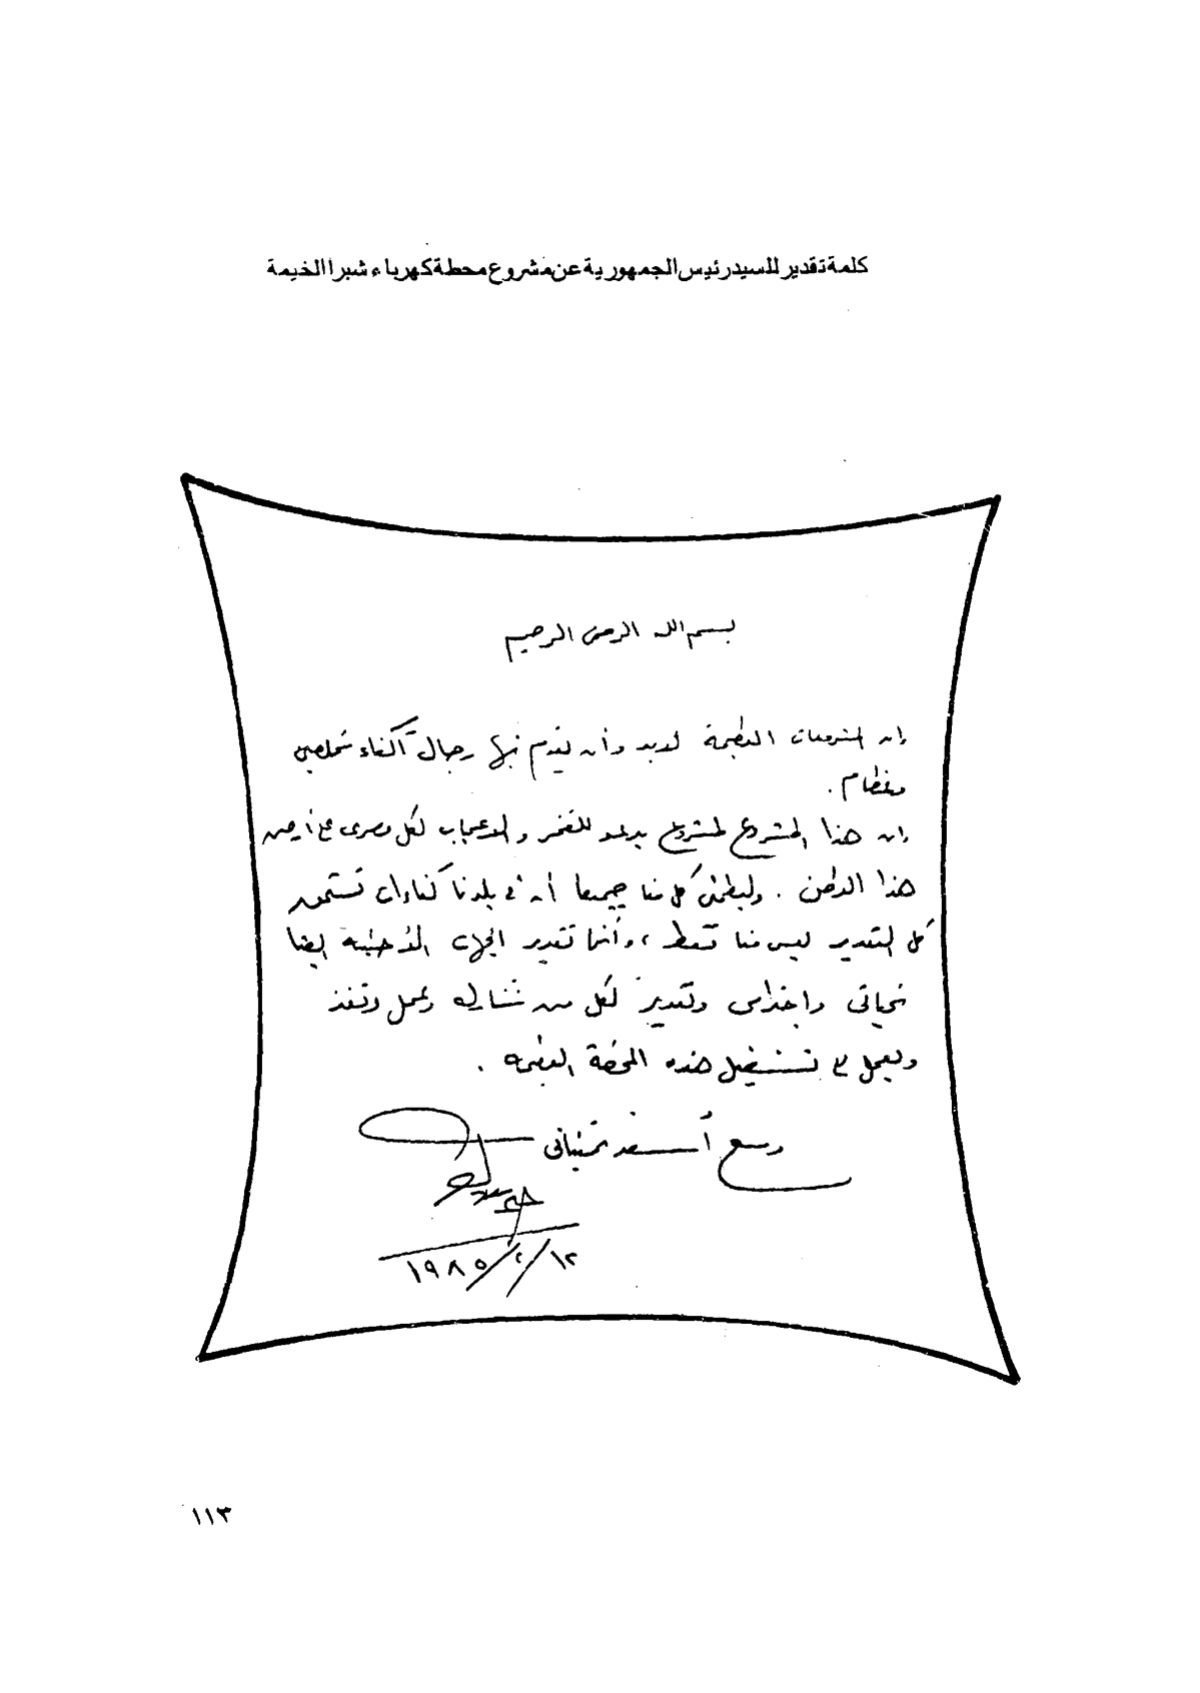 كلمة تقدير للسيد رئيس الجمهورية عن مشروع محطة كهرباء شبرا الخيمة
بسم الله الرحمن الرحيم
إن المشروعات العظيمة لابد وأن يقدم فيها رجال أكفاء مخلصين
وعظام .
إن هذا المشروع لمشروع يدعو للفخر والاعجاب لكل مصرى على أرض
هذا الوطن . وليطمئن كل منا جميعا أن فى بلدنا كفاءات تستحق
كل التقدير ليس منا فقط ، وأنما تقدير الجهات الأجنبية ايضا
تحياتى واحترامى وتقديرى لكل من شارك وعمل ونفذ
ويعمل على تشغيل هذه المحطة العظيمة .
ومع أسعد تمنياتى
١٢/٢/١٩٨٥
١١٣